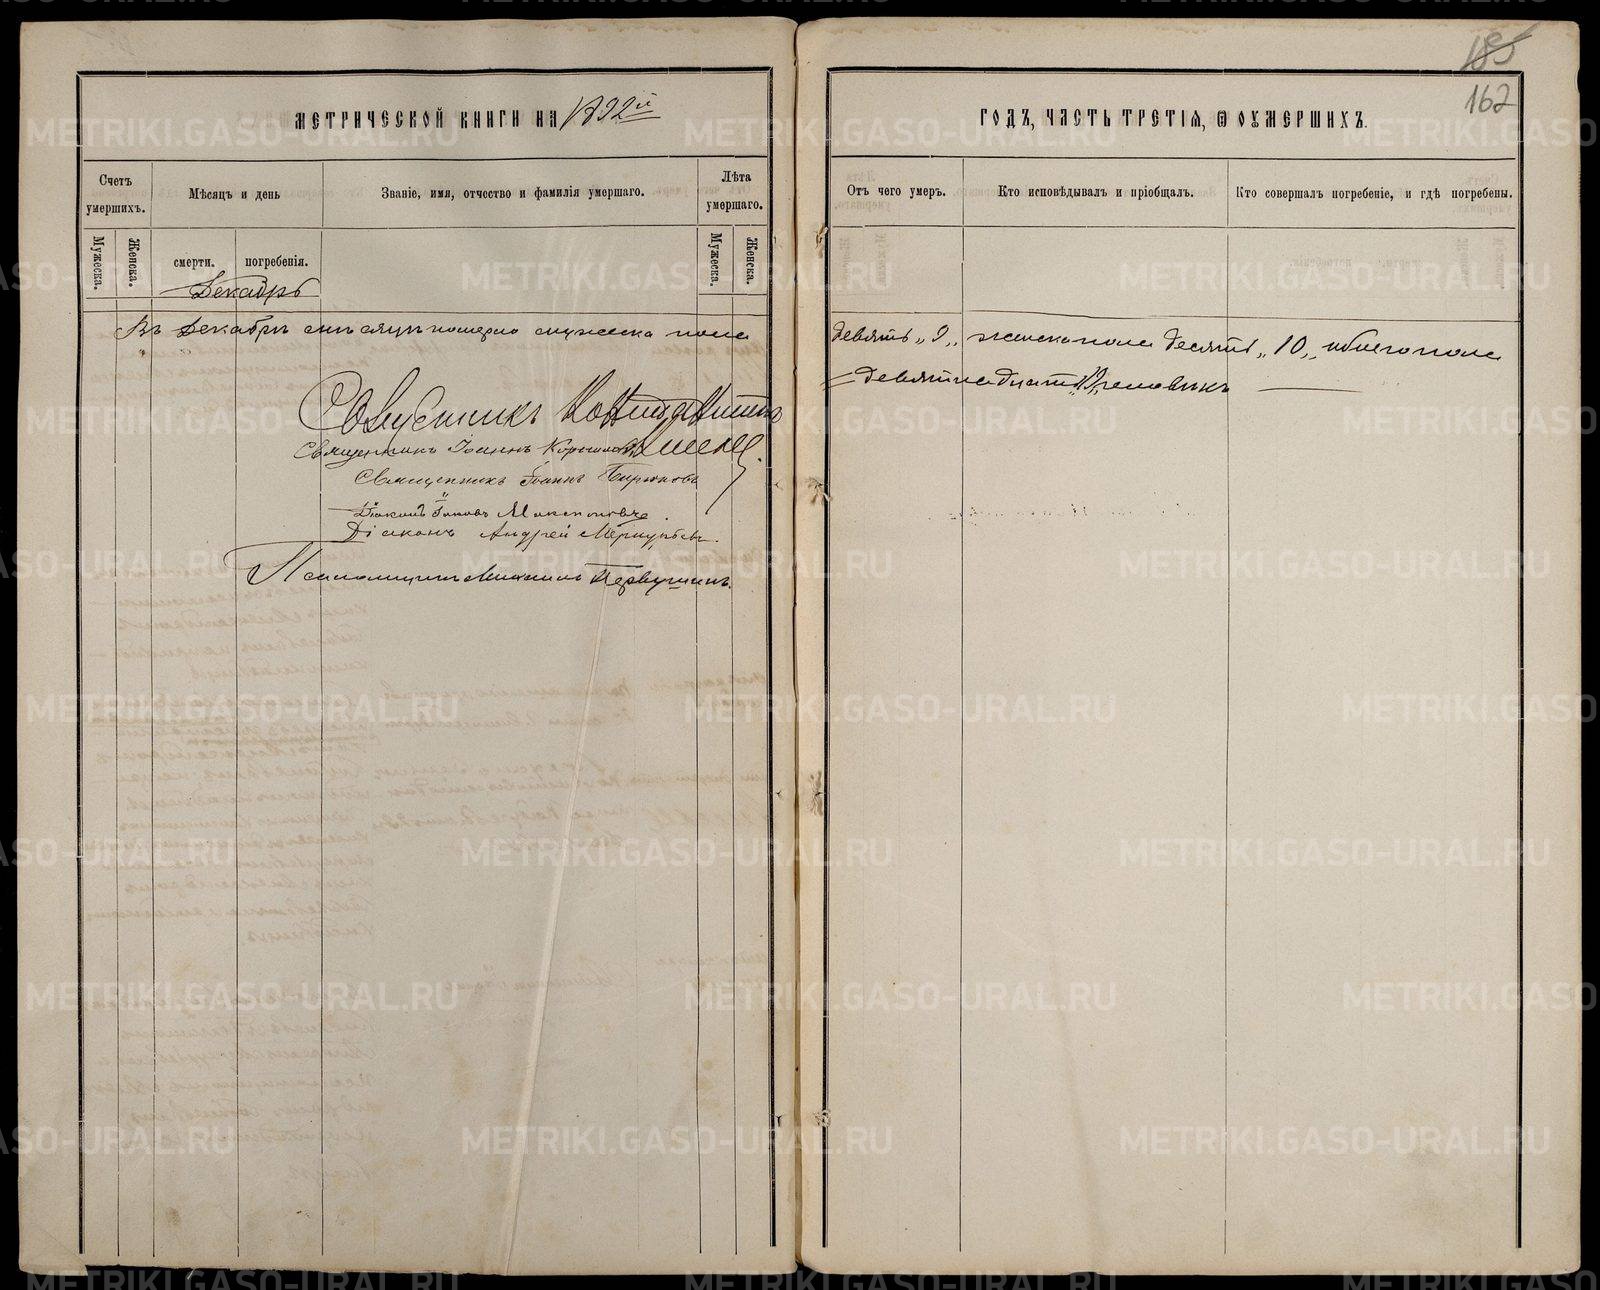 185
162
МЕТРИЧЕСКОЙ КНИГИ НА 1892й
ГОДЪ, ЧАСТЬ ТРЕТІЯ, Ѿ ОУМЕРШИХЪ.
Счетъ умершихъ.
Мѣсяцъ и день
Званіе, имя, отчество и фамилія умершаго.
Лѣта умершаго.
Отъ чего умеръ.
Кто исповѣдывалъ и пріобщалъ.
Кто совершалъ погребеніе, и гдѣ погребены.
Мужеска.
Женска.
смерти.
погребенія.
Мужеска.
Женска.
Декабрь
Въ Декабрѣ мѣсяцѣ померло мужеска пола
девять „9„ женска пола десять „10„ обоего пола
девятнадцать „19„ человѣкъ
Священникъ
Священникъ Іоаннъ
Священникъ Іоаннъ Бирюковъ
Діаконъ Іаковъ
Діаконъ Андрей Меркурьевъ.
Псаломщикъ Михаилъ Первушинъ.
METRIKI.GASO-URAL.RU